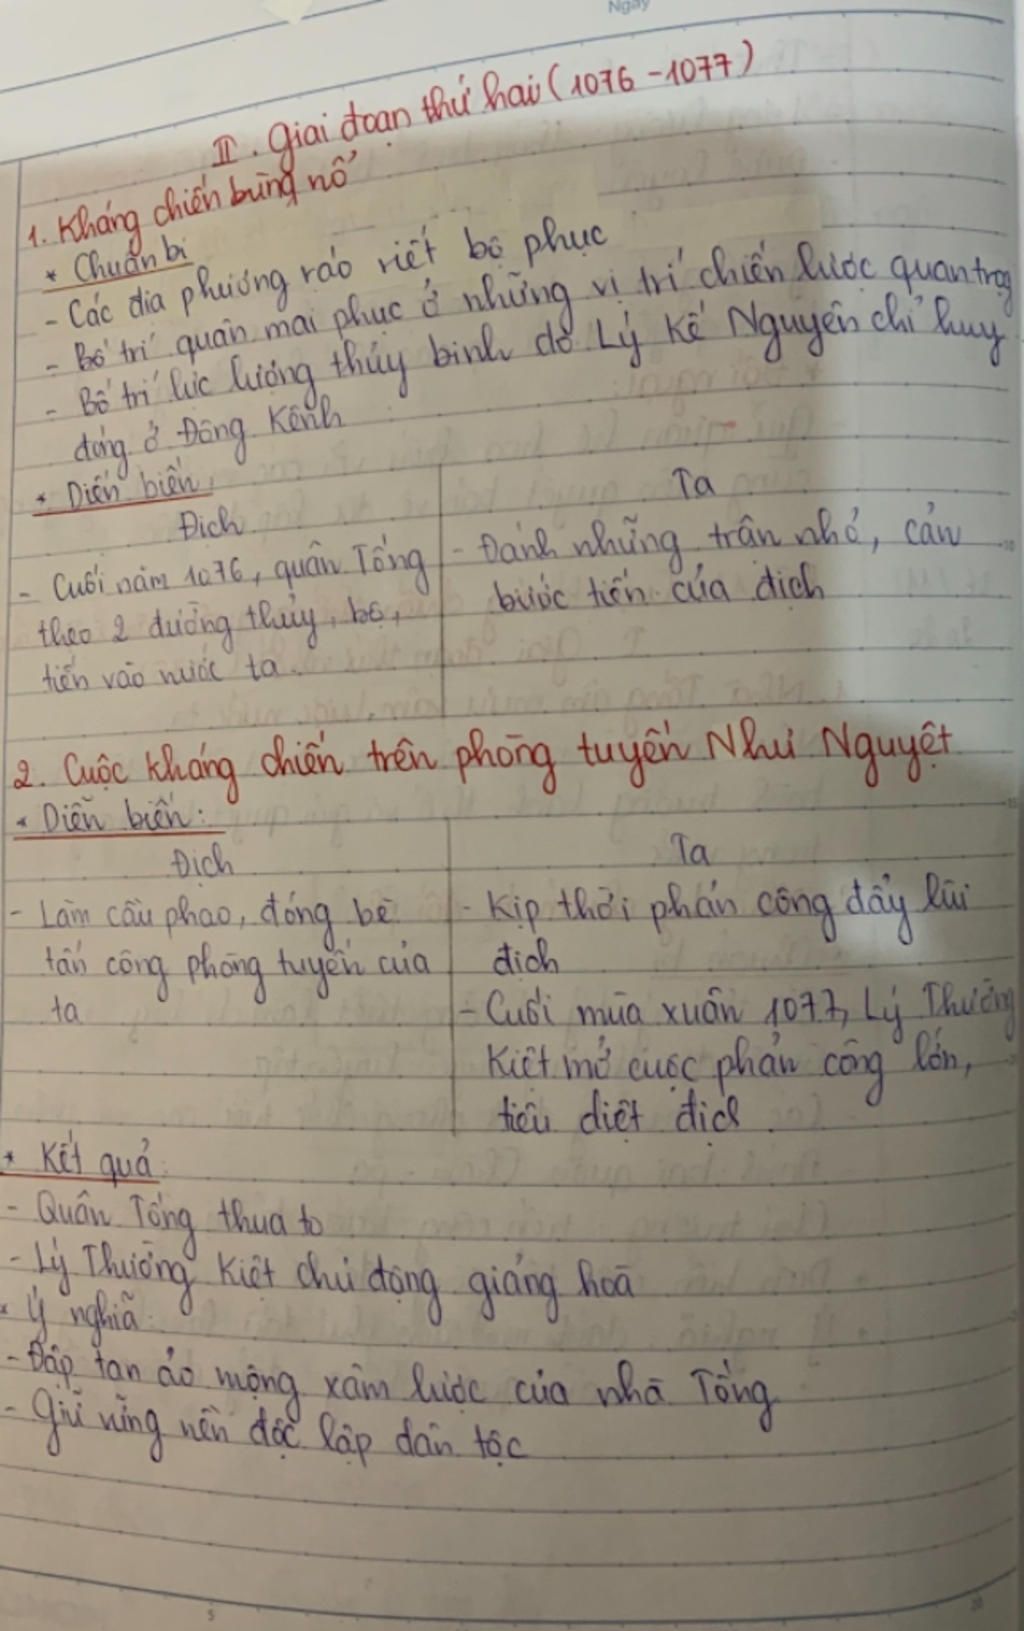 Ngày
II. Giai đoạn thứ hai (1076 - 1077)
1. Kháng chiến bùng nổ
* Chuẩn bị
- Các địa phương ráo riết bố phục
- Bố trí quân mai phục ở những vị trí chiến lược quan trọng
- Bố trí lực lượng thủy binh do Lý Kế Nguyên chỉ huy
đóng ở Đông Kênh
* Diễn biến:
Địch
Ta
- Cuối năm 1076, quân Tống
theo 2 đường thủy, bộ,
tiến vào nước ta.
- Đánh những trận nhỏ, cản
bước tiến của địch
2. Cuộc kháng chiến trên phòng tuyến Như Nguyệt
* Diễn biến:
Địch
Ta
- Làm cầu phao, đóng bè
tấn công phòng tuyến của
ta
- Kịp thời phản công đẩy lùi
địch
- Cuối mùa xuân 1077, Lý Thường
Kiệt mở cuộc phản công lớn,
tiêu diệt địch.
* Kết quả:
- Quân Tống thua to
- Lý Thường Kiệt chủ động giảng hoà
* Ý nghĩa:
- Đập tan ảo mộng xâm lược của nhà Tống
- Giữ vững nền độc lập dân tộc
5